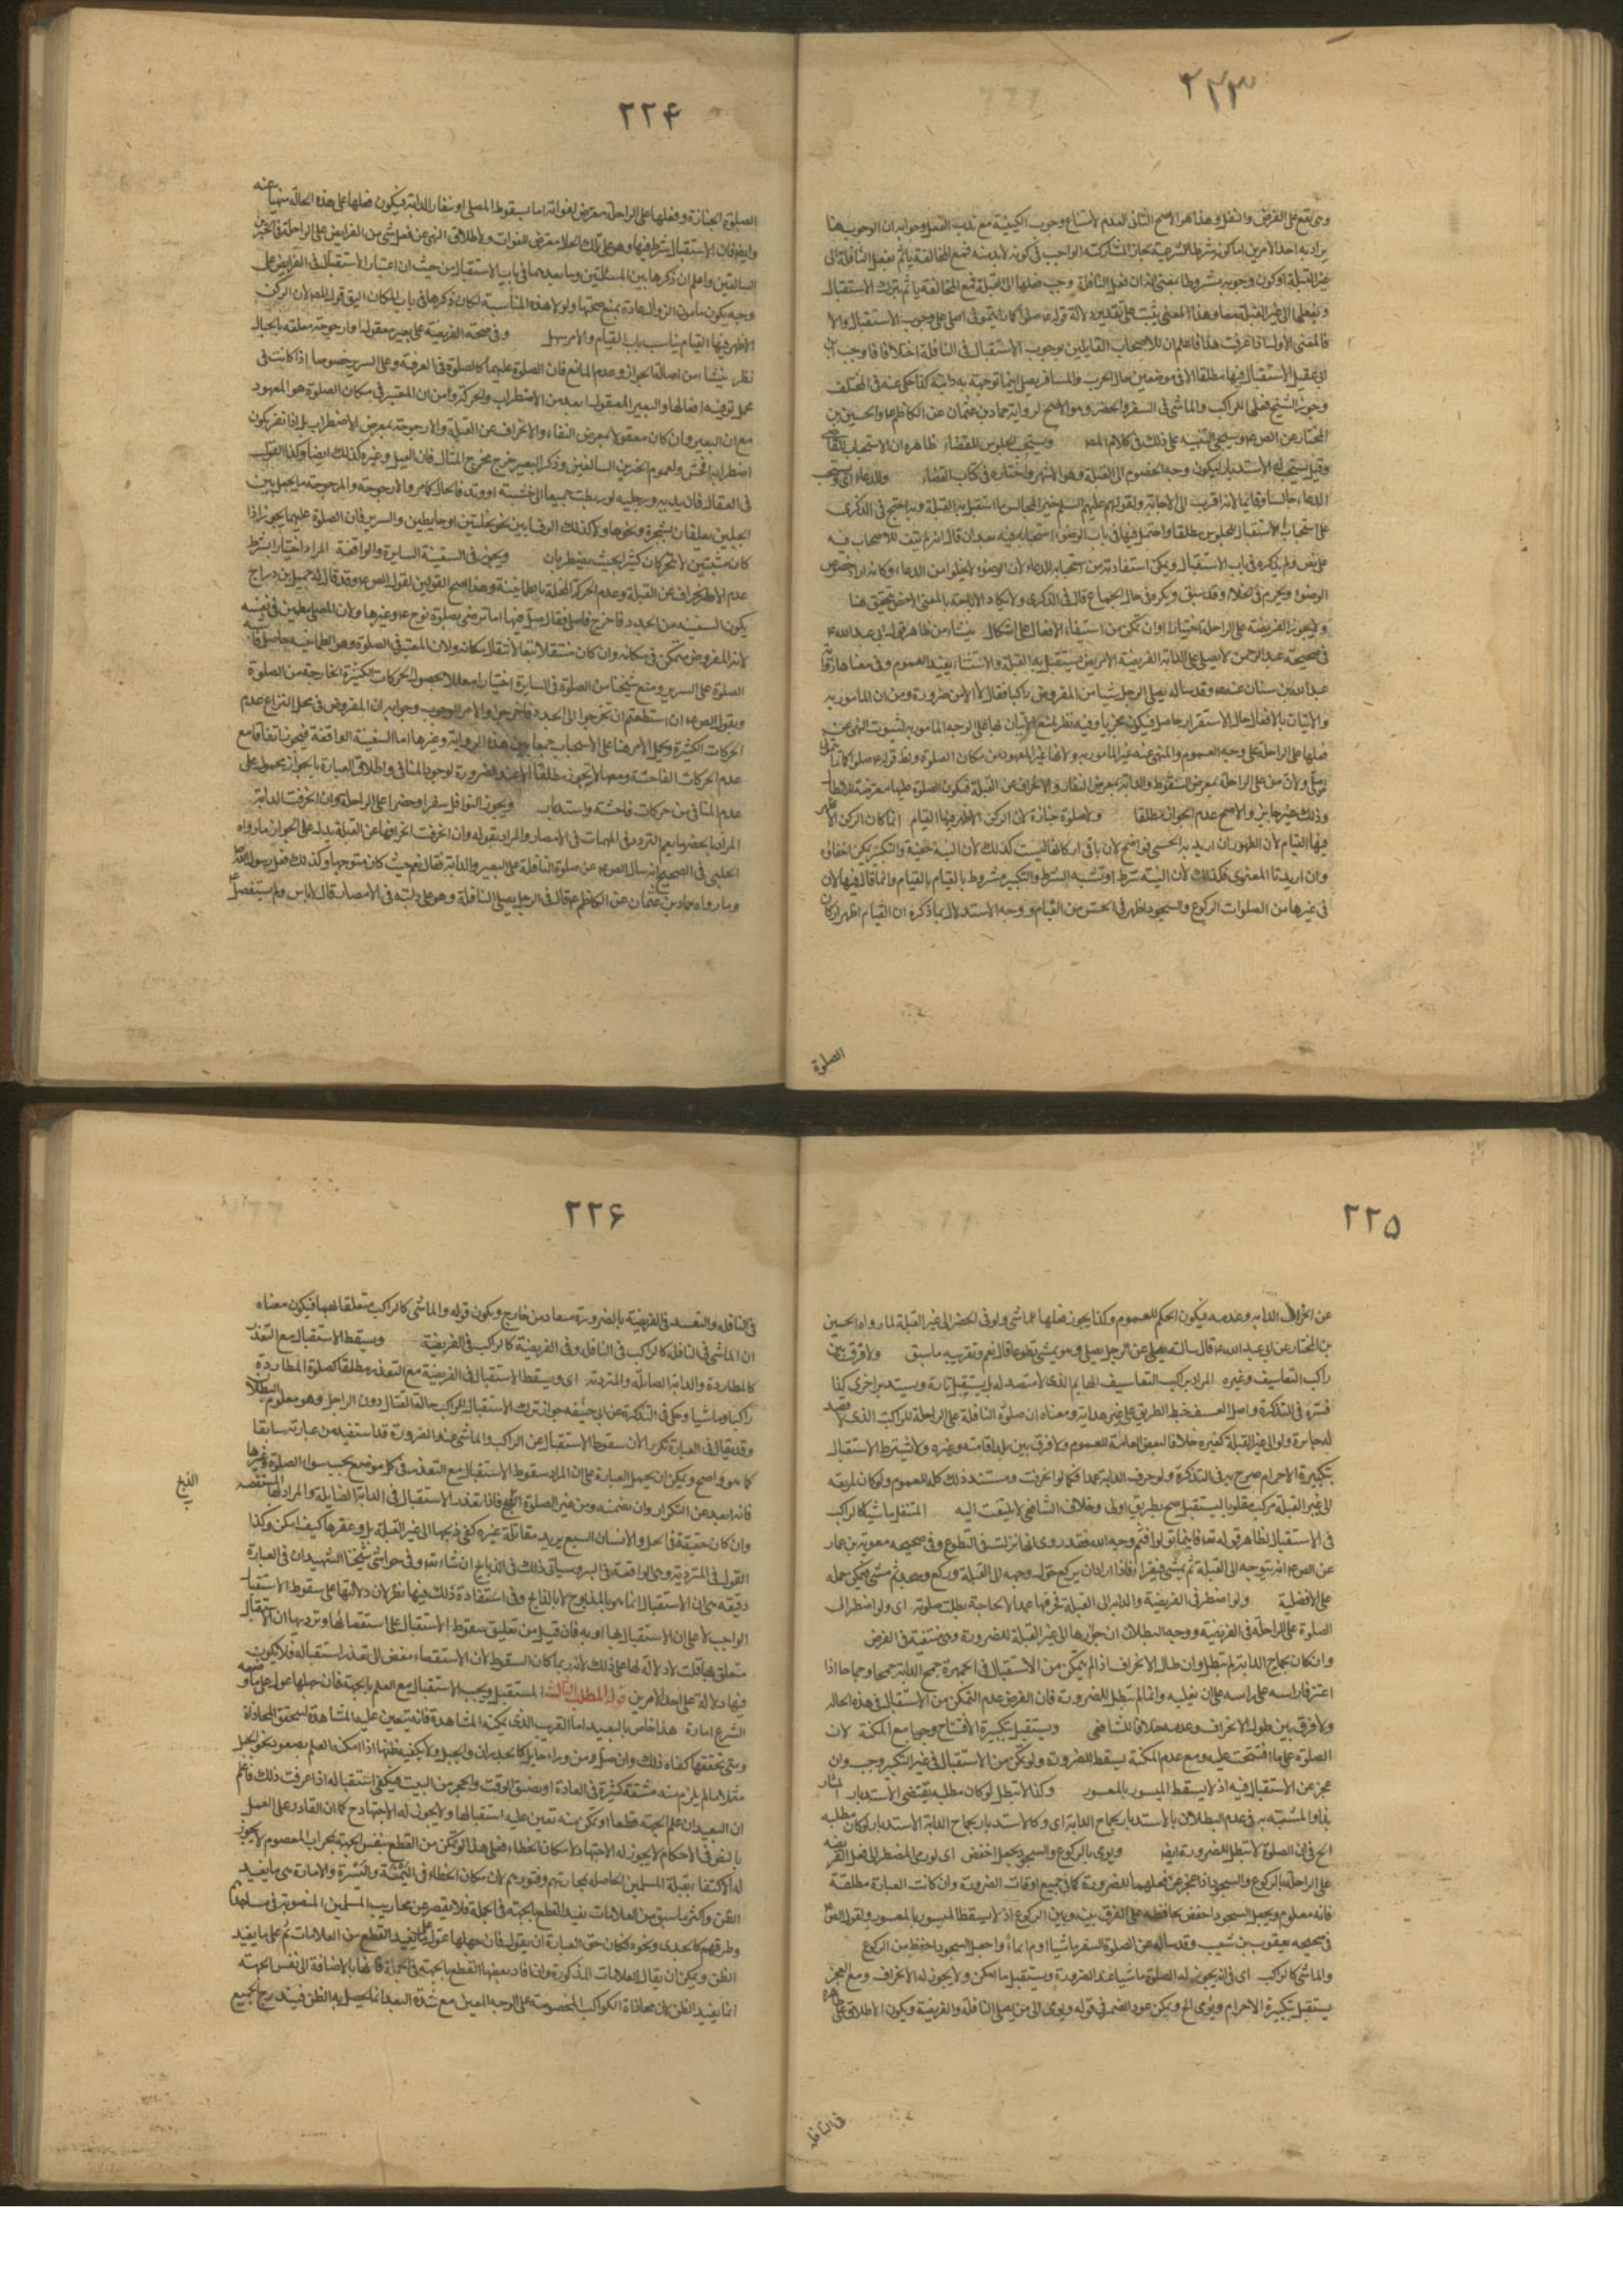 ٢٢٣
وهي تقع على الفرض والنفل وهذا هو الاصح الثاني العدم لامتناع وجوب الكيفية مع ندب الفعل وجوابه ان الوجوب هنا
يراد به احد الامرين اما كونه شرطا للشرعية مجازا لمشاركته الواجب في كونه لابد منه فمع المخالفة ياثم بفعل النافلة الى
غير القبلة او كون وجوبه مشروطا بمعنى انه ان فعل النافلة وجب فعلها الى القبلة فمع المخالفة ياثم بترك الاستقبال
فالمعنى الاول اذا عرفت هذا فاعلم ان للاصحاب القايلين بوجوب الاستقبال في النافلة اختلافا
وجوز الشيخ فعلها للراكب والماشي في السفر والحضر وهو الاصح لرواية حماد بن عثمان عن الكاظم ع والحسين بن
المختار عن الص ع وسيجئ التنبيه على ذلك في كلام المصـ ويستحب الجلوس للقضاء ظاهره ان الاستحباب للقاضي
وقيل يستحب له الاستدبار ليكون وجه الخصوم الى القبلة وهو الاشهر واختاره في كتاب القضاء والدعاء اي ويستحب
الدعاء جالسا وقايما لانه اقرب الى الاجابة ولقولهم عليهم السلم خير المجالس ما استقبل به القبلة وبه احتج في الذكرى
على استحباب الاستقبال للجلوس مطلقا واحتمل فيها في باب الوضوء استحبابه فيه بعد ان قال انه لم يقف للاصحاب فيه
على نص ولم يذكره في باب الاستقبال ويمكن استفادته من استحبابه للدعاء لان الوضوء لا يخلو من الدعاء
الوضوء ويحرم في الخلاء وقد سبق ويكره في حال الجماع قال في الذكرى ولا يكاد الاباحة بالمعنى الاخص يتحقق هنا
ولا يجوز الفريضة على الراحلة اختيارا وان تمكن من استيفاء الافعال على اشكال ينشاء من ظاهر قول ابي عبد الله ع
في صحيحة عبد الرحمن لا يصلي على الدابة الفريضة الا مريض يستقبل به القبلة والاستثناء يفيد العموم وفي معناها رواية
عبد الله بن سنان عنه ع وقد ساله يصلي الرجل شيئا من المفروض راكبا فقال لا الا من ضرورة ومن ان المامور به
والاتيان بالافعال حال الاستقرار حاصل فيكون مجزيا وفيه نظر لمنع الاتيان بها على الوجه المامور به لثبوت النهي عن
فعلها على الراحلة على وجه العموم والمنهي عنه غير المامور به ولانها غير المعهود من مكان الصلوة
اصلي ولان من على الراحلة بمعرض السقوط والدابة بمعرض النفار والانحراف عن القبلة فيكون الصلوة عليها معرضة للابطال
وذلك غير جايز والاصح عدم الجواز مطلقا ولا صلوة جنازة لان الركن الاظهر فيها القيام انما كان الركن الاظهر
فيها القيام لان الظهور ان اريد به الحسي فواضح لان باقي اركانها ليست كذلك لان النية خفية والتكبير يمكن اخفاؤه
وان اريد به المعنوي فكذلك لان النية شرط او تشبه الشرط والتكبير مشروط بالقيام وانما قال فيها لان
في غيرها من الصلوات الركوع والسجود اظهر في الحس من القيام ووجه الاستدلال بما ذكره ان القيام اظهر اركان
الصلوة
٢٢۴
الصلوة الجنازة وفعلها على الراحلة معرض لفواته اما بسقوط المصلي او نفار الدابة فيكون فعلها على هذه الحالة منهيا عنه
وايضا فان الاستقبال شرط فيها وهو على تلك الحالة معرض للفوات ولاطلاق النهي عن فعل شئ من الفرايض على الراحلة في الخبرين
السالفين واعلم ان ذكر هاتين المسئلتين وما بعدهما في باب الاستقبال من حيث ان اعتبار الاستقبال في الفرايض على
وجه يكون مامون الزوال عادة يمنع صحتها ولولا هذه المناسبة لكان ذكرها في باب المكان اليق
الاظهر فيها القيام يناسب باب القيام والامر سهل وفي صحة الفريضة على بعير معقول او ارجوحة معلقة بالحبال
نظر ينشا من اصالة الجواز وعدم المانع فان الصلوة عليهما كالصلوة في الغرفة وعلى السرير خصوصا اذا كانت في
محل توفية افعالها والبعير المعقول ابعد من الاضطراب والحركة ومن ان المعتبر في مكان الصلوة هو المعهود
مع ان البعير وان كان معقولا بمعرض النفار والانحراف عن القبلة والارجوحة بمعرض الاضطراب
وذكر البعير خرج مخرج المثال فان الفيل وغيره كذلك ايضا وكذا القول
في العقال فان يديه ورجليه لو ربطت جميعا الى خشبة او وتد فالحال كما مر والارجوحة
كان مثبتين لا يتحركان كثيرا بحيث يضطربان ويجوز في السفينة السايرة والواقفة المراد اختيارا بشرط
عدم الانحراف عن القبلة وعدم الحركة المخلة بالطمانينة وهذا اصح القولين لقول الص ع وقد قال له جميل بن دراج
يكون السفينة من الجدد فاخرج فاصلي فقال صل فيها اما ترضى بصلوة نوح ع
الصلوة على السرير ومنع شيخنا من الصلوة في السايرة اختيارا معللا بحصول الحركات الكثيرة الخارجة من الصلوة
وبقول الص ع ان استطعتم ان تخرجوا الى الجدد فاخرجوا والامر للوجوب وجوابه ان المفروض في محل النزاع عدم
الحركات الكثيرة وحمل الامر هنا على الاستحباب جمعا بين هذه الرواية وغيرها اما السفينة الواقفة فيجوز اتفاقا مع
عدم الحركات الفاحشة ومعها لا يجوز مطلقا الا عند الضرورة لوجود المنافي واطلاق العبارة بالجواز محمول على
عدم المنافي من حركات فاحشة واستدبار ويجوز النوافل سفرا وحضرا على الراحلة وان انحرفت الدابة
المراد بالحضر ما يعم التردد في المهمات في الامصار والمراد بقوله وان انحرفت انحرافها عن القبلة يدل على الجواز ما رواه
الحلبي في الصحيح انه سال الص ع عن صلوة النافلة على البعير والدابة فقال نعم حيث كان متوجها وكذلك فعل رسول الله ص
وما رواه حماد بن عثمان عن الكاظم ع قال في الرجل يصلي النافلة وهو على دابته في الامصار قال لاباس ولم يستفصل
٢٢۵
عن انحراف الدابه وعدمه فيكون الحكم للعموم وكذا يجوز فعلها للماشي ولو في الحضر الى غير القبلة لما رواه الحسين
بن المختار عن ابي عبد الله ع قال سالته عن الرجل يصلي وهو يمشي تطوعا قال نعم وتقريبه ما سبق ولا فرق بين
راكب التعاسيف وغيره المراد براكب التعاسيف الهايم الذي لا مقصد له بل يستقبل تارة ويستدبر اخرى كذا
فسره في التذكرة واصل العسف خبط الطريق على غير هداية ومعناه ان صلوة النافلة على الراحلة للراكب الذي لا قصد
له جايزة ولو الى غير القبلة كغيره خلافا لبعض العامة للعموم ولا فرق بين بلد اقامته وغيره ولا يشترط الاستقبال
بتكبيرة الاحرام صرح به في التذكرة ولو حرف الدابة عمدا فكما لو انحرفت ومستند ذلك كله العموم ولو كان طريقه
الى غير القبلة فركب مقلوبا ليستقبل صح بطريق اولى وخلاف الشافعي لا يلتفت اليه المتنفل ماشيا كالراكب
في الاستقبال لظاهر قوله تعا فاينما تولوا فثم وجه الله فقد روى انها نزلت في التطوع وفي صحيحه معوية بن عمار
عن الص ع انه يتوجه الى القبلة ثم يمشي ويقرأ فاذا اراد ان يركع حول وجهه الى القبلة وركع وسجد ثم مشى فيمكن حمله
على الافضلية ولو اضطر في الفريضة والدابة الى القبلة فحرفها عمدا لا لحاجة بطلت صلوته اي ولو اضطر الى
الصلوة على الراحلة في الفريضة ووجه البطلان ان جوازها الى غير القبلة للضرورة وهي منتفية في الفرض
وان كان بجماح الدابة لم تبطل وان طال الانحراف اذا لم يتمكن من الاستقبال في الجمهرة جمح الدابة جمحا وجماحا اذا
اعتز فارسه على راسه حتى ان يغلبه وانما لم تبطل للضرورة فان الفرض عدم التمكن من الاستقبال في هذه الحاله
ولا فرق بين طول الانحراف وعدمه خلافا للشافعي ويستقبل بتكبيرة الافتتاح وجوبا مع المكنة لان
الصلوة على ما افتتحت عليه ومع عدم المكنة يسقط للضرورة ولو تمكن من الاستقبال في غير التكبير وجب وان
عجز عن الاستقبال فيه اذ لا يسقط الميسور بالمعسور وكذا لا تبطل لو كان مطلبه يقتضي الاستدبار
بذا والمشبه به في عدم البطلان بالاستدبار بجماح الدابة اي وكالاستدبار بجماح الدابة الاستدبار لو كان مطلبه
الخ في ان الصلوة لا تبطل للضرورة ايضا ويومى بالركوع والسجود ويجعل السجود اخفض اي لو صلى المضطر الى فعل الفريضة
على الراحلة بالركوع والسجود اذا عجز عن فعلهما للضرورة كما في جميع اوقات الضرورة وان كانت العبارة مطلقة
فانه معلوم ويجعل السجود اخفض محافظة على الفرق بينه وبين الركوع اذ لا يسقط الميسور بالمعسور ولقول الص ع
في صحيحه يعقوب بن شعيب وقد ساله عن الصلوة السفر ماشيا اوم ايماء واجعل السجود اخفض من الركوع
والماشي كالراكب اي في انه يجوز له الصلوة ماشيا عند الضرورة ويستقبل ما امكن ولا يجوز له الانحراف ومع العجز
يستقبل بتكبيرة الاحرام ويومى الخ ويمكن عود الضمير في قوله ويومى الى من يصلي النافلة والفريضة ويكون الاطلاق على ظاهره
في النافله
٢٢۶
في النافله والتقييد في الفريضة بالضرورة مستفاد من خارج ويكون قوله والماشي كالراكب متعلقا بهما فيكون معناه
ان الماشي في النافلة كالراكب في النافلة وفي الفريضة كالراكب في الفريضة ويسقط الاستقبال مع التعذر
كالمطاردة والدابة الصايلة والمتردية اي ويسقط الاستقبال في الفريضة مع التعذر مطلقا كصلوة المطاردة
راكبا وماشيا وحكى في التذكرة عن ابي حنيفه جواز ترك الاستقبال للراكب حالة القتال دون الراجل وهو معلوم البطلان
وقد يقال في العبارة تكرير لان سقوط الاستقبال عن الراكب والماشي عند الضرورة قد استفيد من عبارته سابقا
كما هو واضح ويمكن ان يحمل العبارة على ان المراد سقوط الاستقبال مع التعذر في كل موضع يجب سواء الصلوة وغيرها
فانه ابعد عن التكرار وان تضمنه ومن غير الصلوة الذبح فاذا تعذر الاستقبال في الدابة الصايلة والمراد بها المستعصيه
الذبح
وان كان حقيقة في الجمل والانسان السبع يريد مقاتلة غيره كفى ذبحها الى غير القبلة بل وعقرها كيف امكن وكذا
القول في المتردية وهي الواقعة في البئر وسياتي ذلك في الذبايح ان شاء الله وفي حواشي شيخنا الشهيد ان في العبارة
دقيقه هي ان الاستقبال انما هو بالمذبوح لا بالذابح وفي استفادة ذلك منها نظر لان دلالتها على سقوط الاستقبال
الواجب لا على ان الاستقبال بها او به فان قيل من تعليق سقوط الاستقبال على استعصائها وترديها ان الاستقبال
متعلق بها قلت لا دلالة لها على ذلك لانه ربما كان السقوط لان الاستعصاء مفض الى تعذر استقباله فلا يكون
فيها دلالة على احد الامرين قوله المطلب الثالث المستقبل ويجب الاستقبال مع العلم بالجهة فان جهلها عول على ما وضعه
الشرع امارة هذا خاص بالبعيد اما القريب الذي يمكنه المشاهدة فانه يتعين عليه المشاهدة لتحقق المحاذاة
ومتى تحققها كفاه ذلك وان صلى من وراء حايل كالجدران والجبل ولا يكفيه ظنها اذا امكنه العلم بصعود نحو الجبل
مثلا ما لم يلزم منه مشقة كثيرة في العادة او يضيق الوقت والحجر من البيت فيكفي استقباله اذا عرفت ذلك فاعلم
ان البعيد ان علم الجهة قطعا او تمكن منه تعين عليه استقبالها ولا يجوز له الاجتهاد ح كما ان القادر على العمل
بالنص في الاحكام لا يجوز له الاجتهاد لامكان الخطاء فعلى هذا لو تمكن من القطع بنفس الجهة بمحراب المعصوم لا يجوز
له الاكتفا بقبلة المسلمين الحاصله بمحاريبهم وقبورهم لان مكان الخطاء في التيمنة والتيسرة والامارة هي ما يفيد
الظن واكثر ما سبق من العلامات يفيد القطع بالجهة في الجملة فلا يقصر عن محاريب المسلمين المنصوبة في مساجدها
وطرقهم كالجدى ونحوه فكان حق العبارة ان يقول فان جهلها عول على ما يفيد القطع من العلامات ثم على ما يفيد
الظن ويمكن ان يقال العلامات المذكورة وان افاد بعضها القطع بالجهة في الجملة فانها بالاضافة الى نفس الجهته
انما يفيد الظن لان محاذاة الكواكب المخصوصة على الوجه المعين مع شدة البعد انما يحصل به الظن